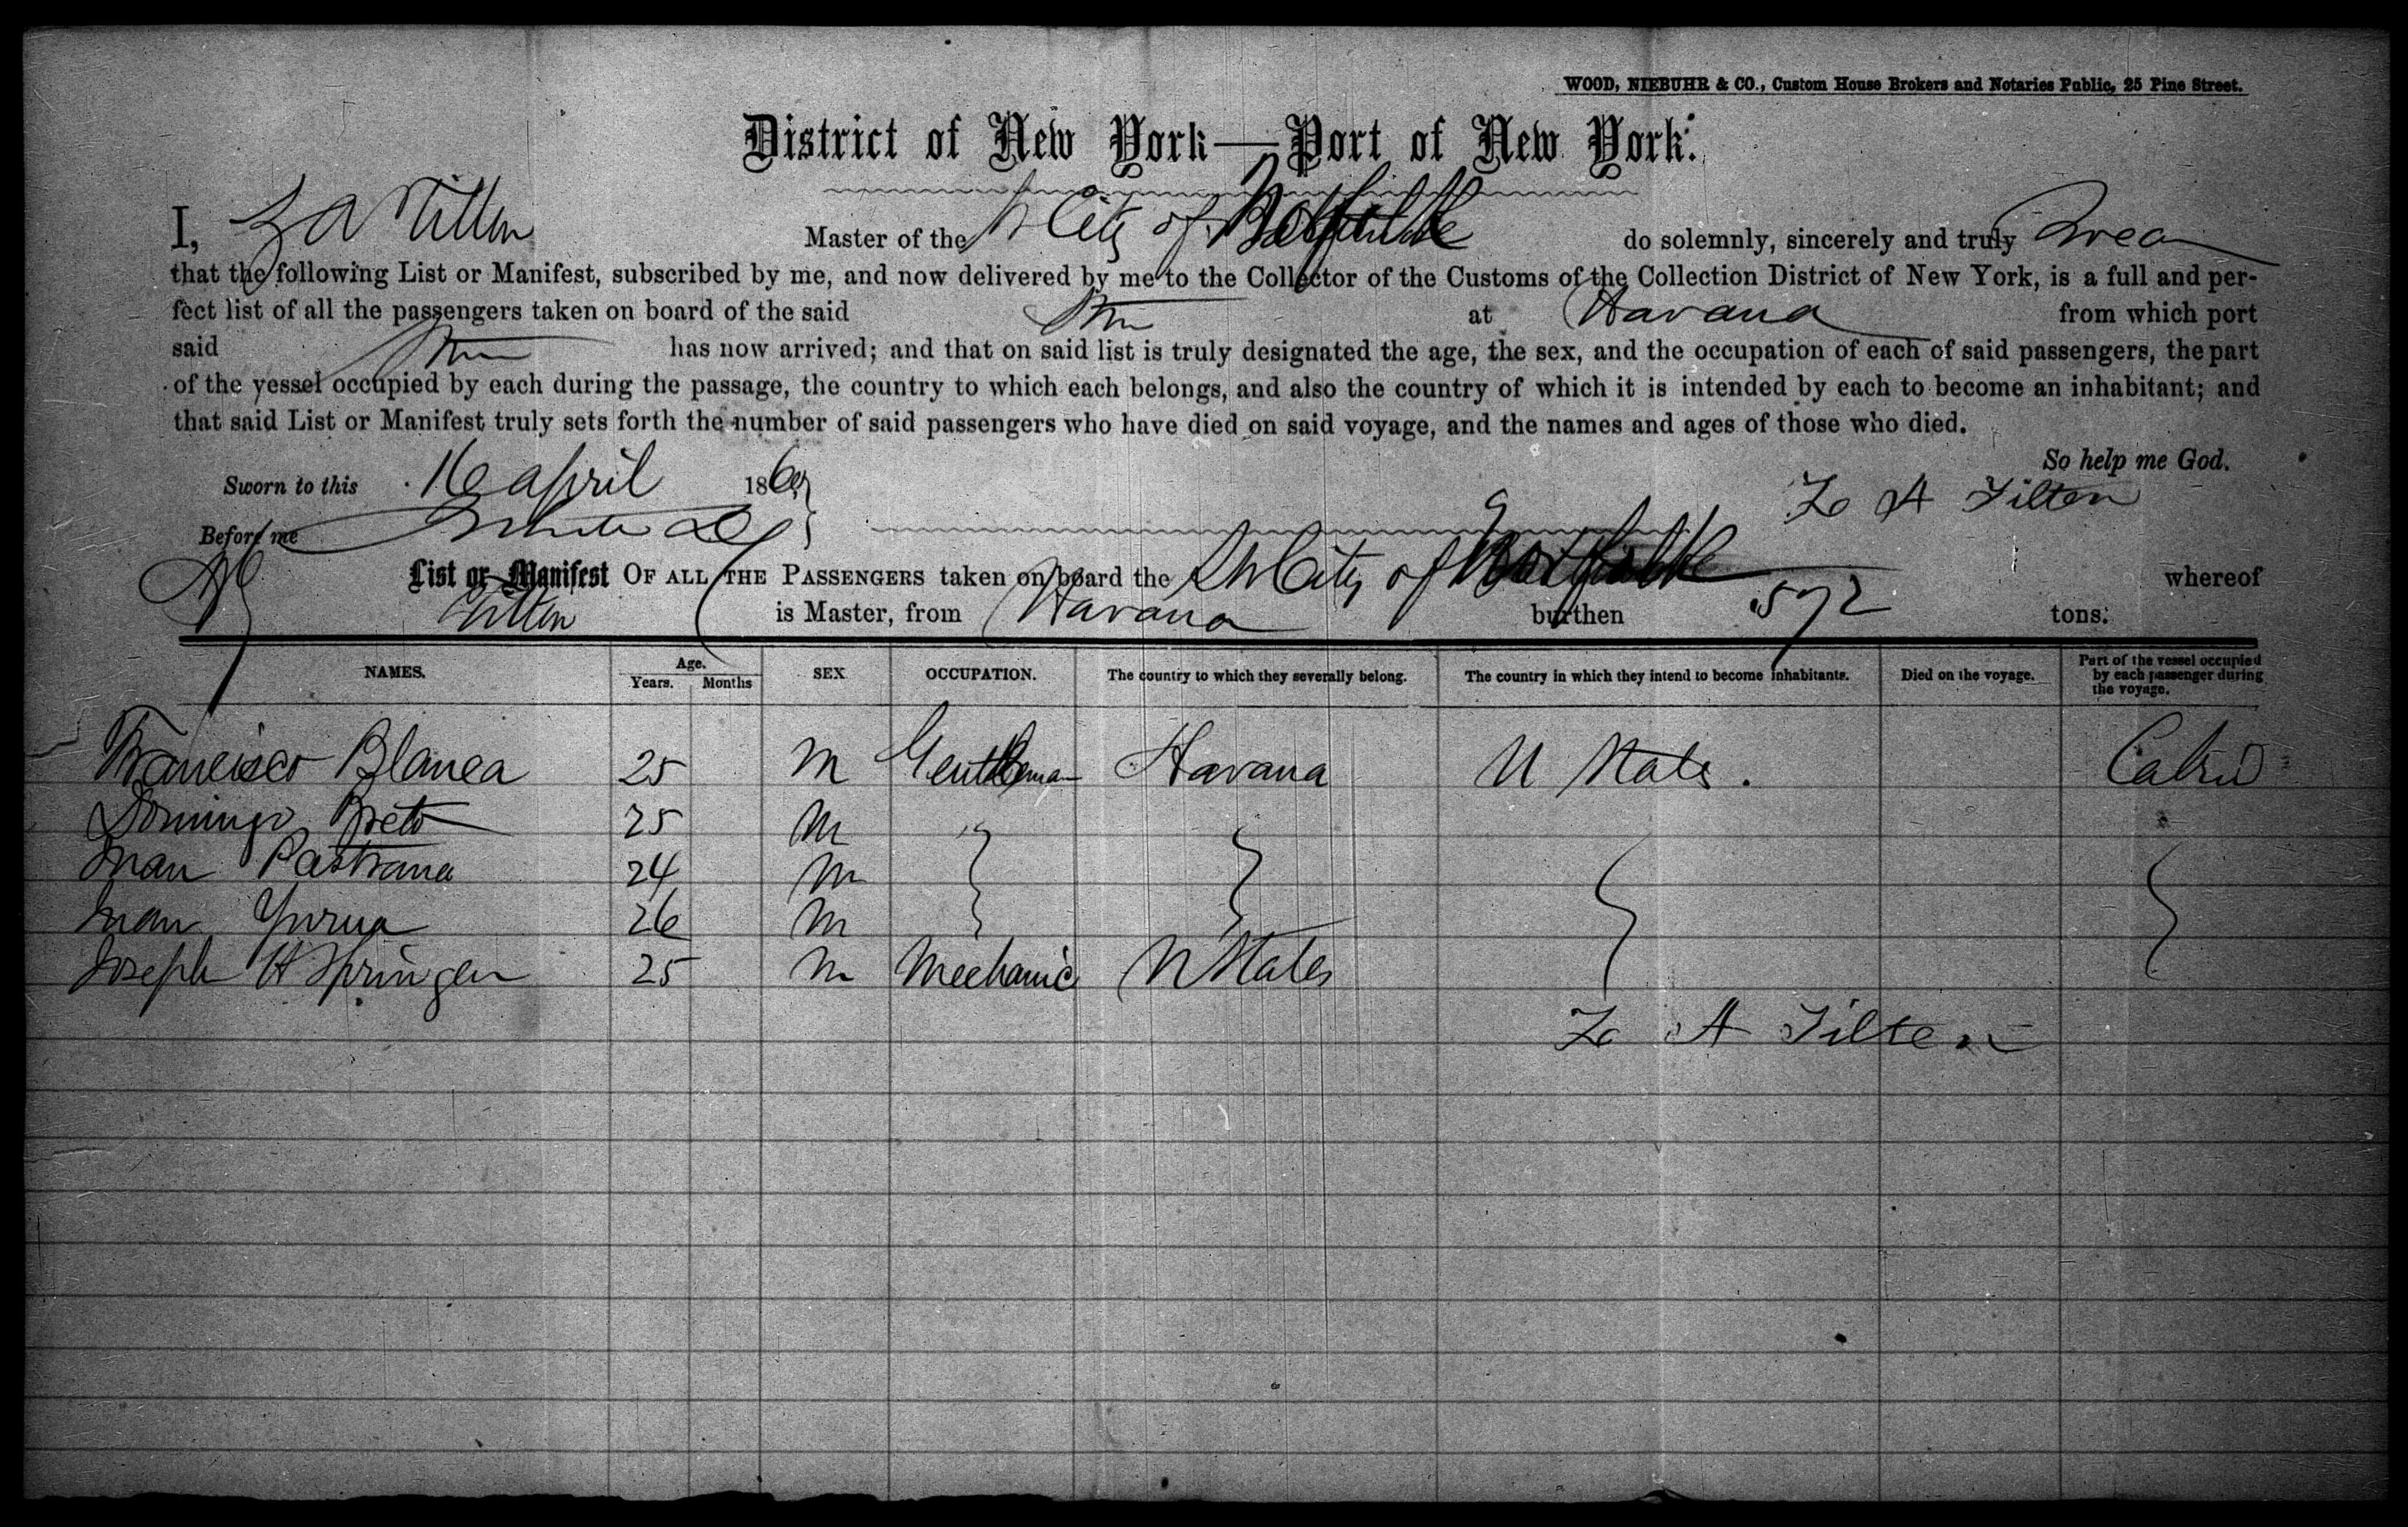 WOOD, NIEBUHR & CO., Custom House Brokers and Notaries Public, 25 Pine Street.
District of New York—Port of New York.
I, Z A Tilton Master of the Str City of Norfolk do solemnly, sincerely and truly Swear
that the following List or Manifest, subscribed by me, and now delivered by me to the Collector of the Customs of the Collection District of New York, is a full and per-
fect list of all the passengers taken on board of the said Str at Havana from which port
said Str has now arrived; and that on said list is truly designated the age, the sex, and the occupation of each of said passengers, the part
of the vessel occupied by each during the passage, the country to which each belongs, and also the country of which it is intended by each to become an inhabitant; and
that said List or Manifest truly sets forth the number of said passengers who have died on said voyage, and the names and ages of those who died.
So help me God.
Sworn to this 16 April 186
Z A Tilton
Before me
List or Manifest OF ALL THE PASSENGERS taken on board the Str City of Norfolk whereof
Tilton is Master, from Havana burthen 572 tons.
NAMES. Age. Years. Months SEX OCCUPATION. The country to which they severally belong. The country in which they intend to become inhabitants. Died on the voyage. Part of the vessel occupied by each passenger during the voyage.
Francisco Blanca 25 M Gentleman Havana U States. Cabin
Domingo 25 M
Juan Pastrana 24 M
Juan 26 M
Joseph H Springer 25 M Mechanic U States
Z A Tilton